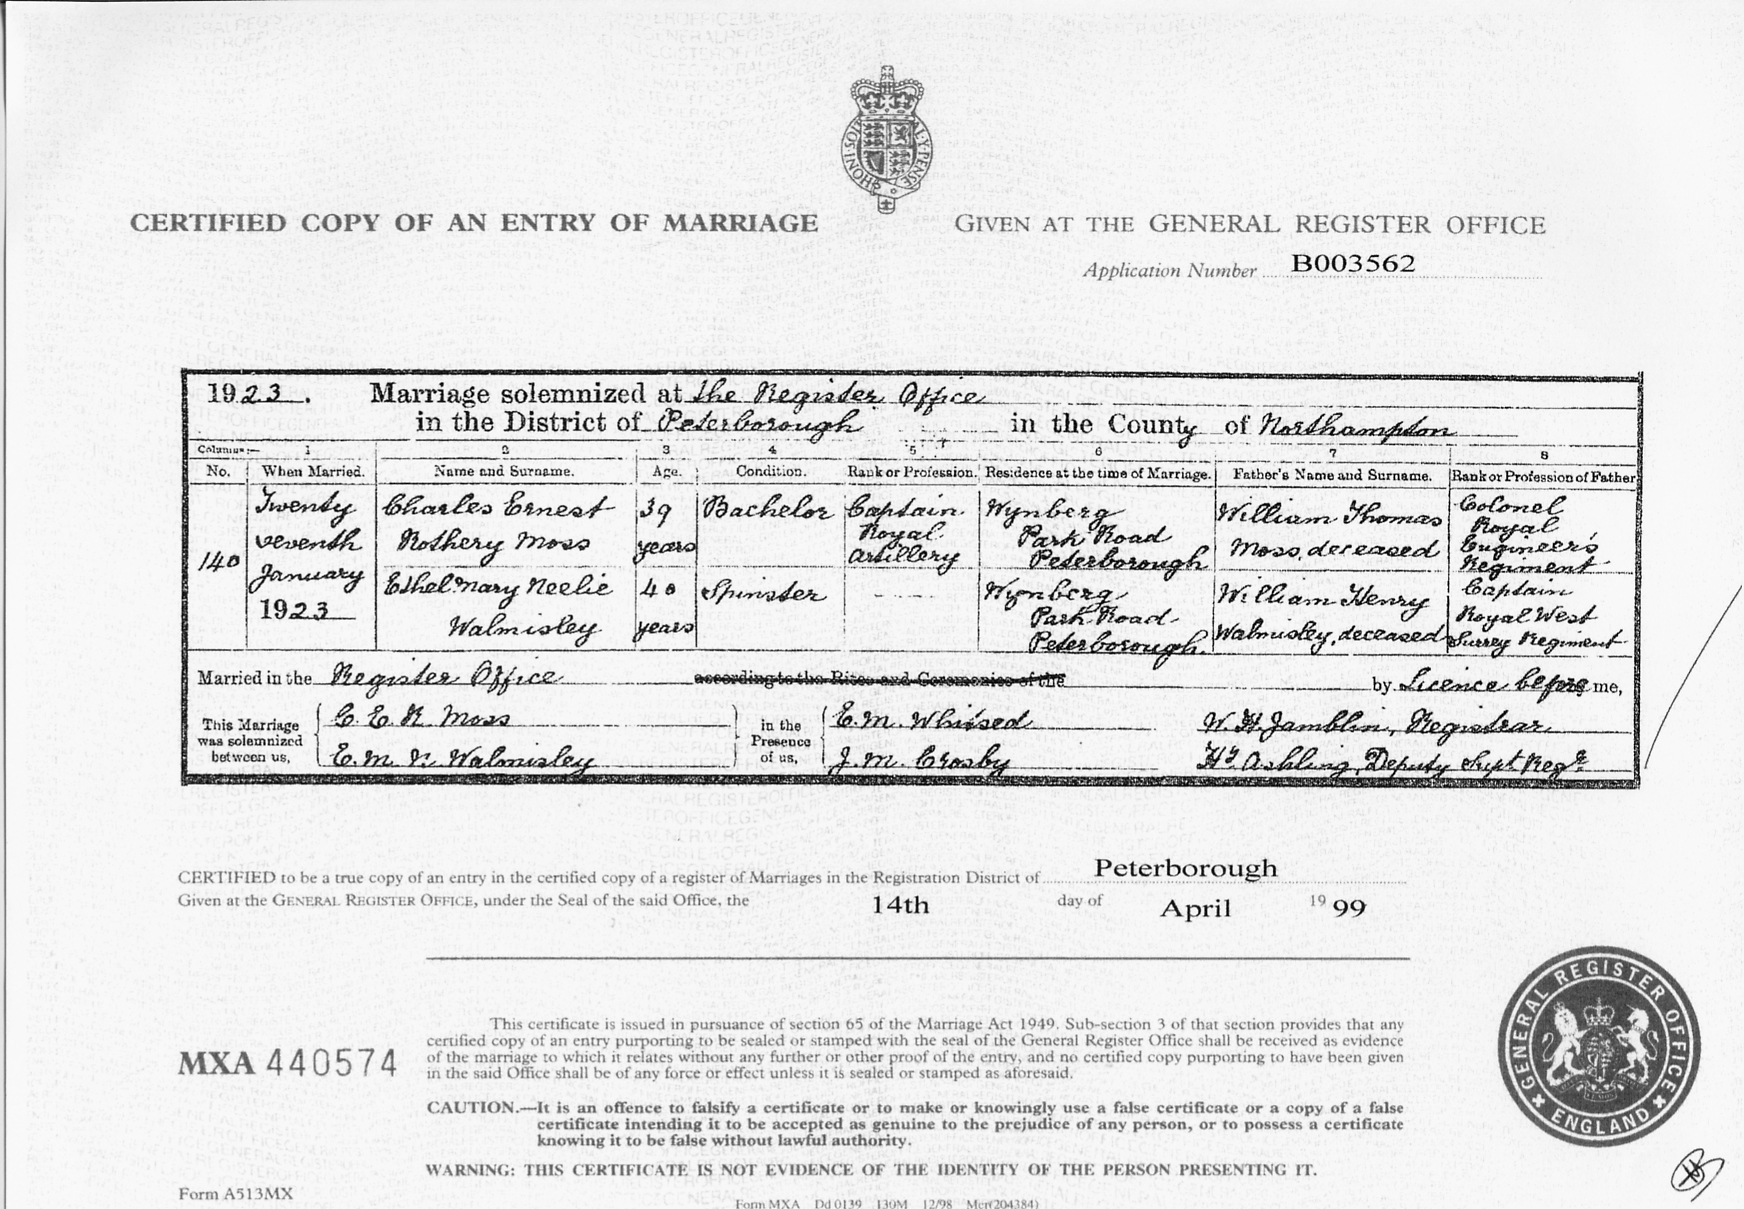 HONI·SOIT
Y·PENSE
CERTIFIED COPY OF AN ENTRY OF MARRIAGE
GIVEN AT THE GENERAL REGISTER OFFICE
Application Number B003562
1923. Marriage solemnized at the Register Office
in the District of Peterborough in the County of Northampton
Columns:— 1 2 3 4 5 6 7 8
No. When Married. Name and Surname. Age. Condition. Rank or Profession. Residence at the time of Marriage. Father's Name and Surname. Rank or Profession of Father
140
Twenty
seventh
January
1923
Charles Ernest
Rothery Moss
39
years
Bachelor
Captain
Royal
Artillery
Wynberg
Park Road
Peterborough
William Thomas
Moss, deceased
Colonel
Royal
Engineers
Regiment
Ethel Mary Neelie
Walmisley
40
years
Spinster
Wynberg
Park Road
Peterborough.
William Henry
Walmisley, deceased
Captain
Royal West
Surrey Regiment
Married in the Register Office according to the Rites and Ceremonies of the by Licence before me,
This Marriage
was solemnized
between us,
C. E. R. Moss
E. M. N. Walmisley
in the
Presence
of us,
E. M. Whitsed
J. M. Crosby
W. H. Jamblin, Registrar
Ashling, Deputy Supt Regr
CERTIFIED to be a true copy of an entry in the certified copy of a register of Marriages in the Registration District of Peterborough
Given at the GENERAL REGISTER OFFICE, under the Seal of the said Office, the 14th day of April 1999
This certificate is issued in pursuance of section 65 of the Marriage Act 1949. Sub-section 3 of that section provides that any
certified copy of an entry purporting to be sealed or stamped with the seal of the General Register Office shall be received as evidence
of the marriage to which it relates without any further or other proof of the entry, and no certified copy purporting to have been given
in the said Office shall be of any force or effect unless it is sealed or stamped as aforesaid.
MXA 440574
CAUTION.—It is an offence to falsify a certificate or to make or knowingly use a false certificate or a copy of a false
certificate intending it to be accepted as genuine to the prejudice of any person, or to possess a certificate
knowing it to be false without lawful authority.
WARNING: THIS CERTIFICATE IS NOT EVIDENCE OF THE IDENTITY OF THE PERSON PRESENTING IT.
GENERAL REGISTER OFFICE
ENGLAND
Form A513MX
Form MXA Dd 0139 130M 12/98 Mcr(204384)